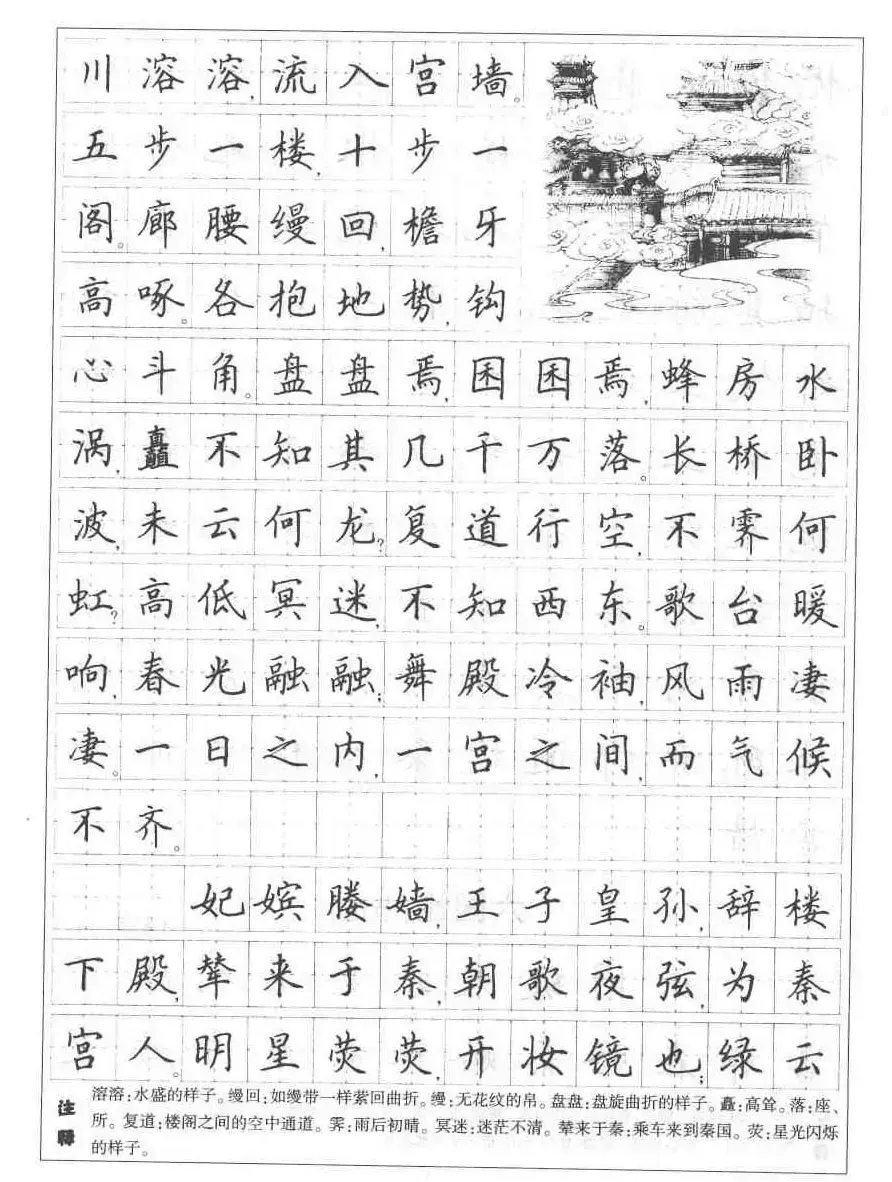 川溶溶,流入宫墙。
五步一楼,十步一
阁。廊腰缦回,檐牙
高啄。各抱地势,钩
心斗角。盘盘焉,困困焉,蜂房水
涡,矗不知其几千万落。长桥卧
波,未云何龙?复道行空,不霁何
虹?高低冥迷,不知西东。歌台暖
响,春光融融;舞殿冷袖,风雨凄
凄。一日之内,一宫之间,而气候
不齐。
妃嫔媵嫱,王子皇孙,辞楼
下殿,辇来于秦,朝歌夜弦,为秦
宫人。明星荧荧,开妆镜也;绿云
注释
溶溶:水盛的样子。缦回:如缦带一样萦回曲折。缦:无花纹的帛。盘盘:盘旋曲折的样子。矗:高耸。落:座、
所。复道:楼阁之间的空中通道。霁:雨后初晴。冥迷:迷茫不清。辇来于秦:乘车来到秦国。荧:星光闪烁
的样子。